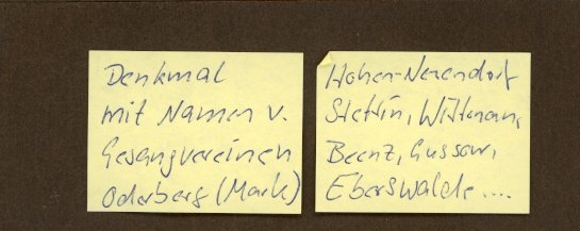 Denkmal
mit Namen v.
Gesangvereinen
Oderberg (Mark)
Hohen-Neuendorf
Stettin,
Beenz, Gussow,
Eberswalde ....